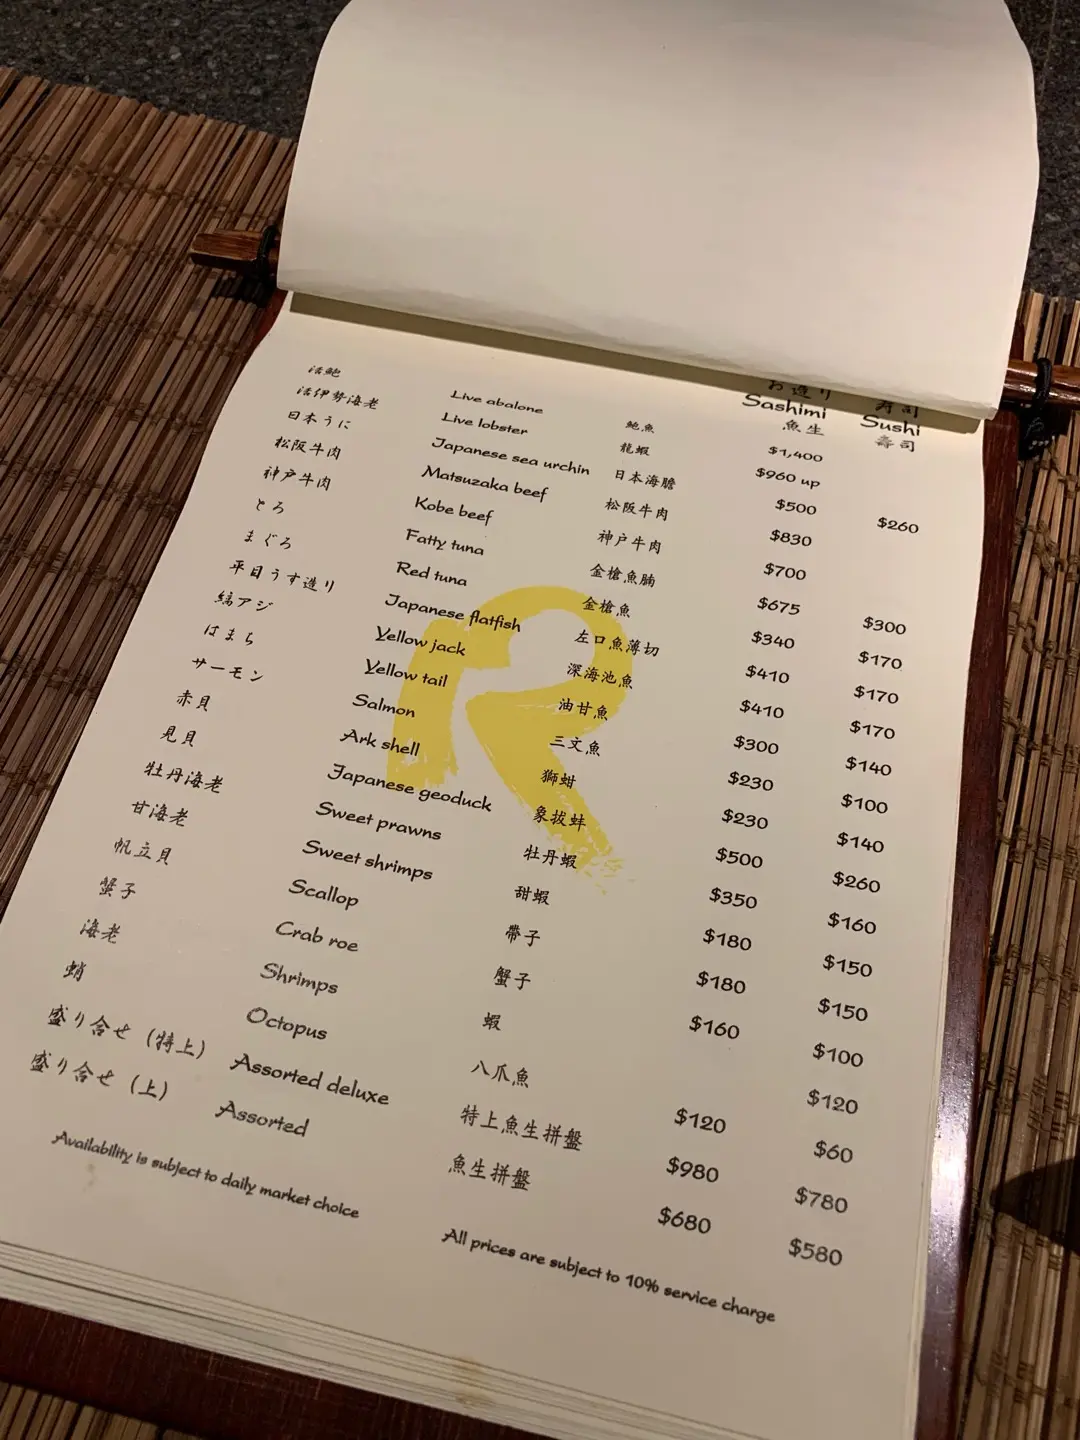 お造り 寿司
Sashimi Sushi
魚生 壽司
活鮑 Live abalone 鮑魚 $1,400
活伊勢海老 Live lobster 龍蝦 $960 up
日本うに Japanese sea urchin 日本海膽 $500 $260
松阪牛肉 Matsuzaka beef 松阪牛肉 $830
神戸牛肉 Kobe beef 神户牛肉 $700
とろ Fatty tuna 金槍魚腩 $675 $300
まぐろ Red tuna 金槍魚 $340 $170
平目うす造り Japanese flatfish 左口魚薄切 $410 $170
縞アジ Yellow jack 深海池魚 $410 $170
はまち Yellow tail 油甘魚 $300 $140
サーモン Salmon 三文魚 $230 $100
赤貝 Ark shell 獅蚶 $230 $140
見貝 Japanese geoduck 象拔蚌 $500 $260
牡丹海老 Sweet prawns 牡丹蝦 $350 $160
甘海老 Sweet shrimps 甜蝦 $180 $150
帆立貝 Scallop 帶子 $180 $150
蟹子 Crab roe 蟹子 $160 $100
海老 Shrimps 蝦 $120
蛸 Octopus 八爪魚 $120 $60
盛り合せ（特上） Assorted deluxe 特上魚生拼盤 $980 $780
盛り合せ（上） Assorted 魚生拼盤 $680 $580
Availability is subject to daily market choice
All prices are subject to 10% service charge